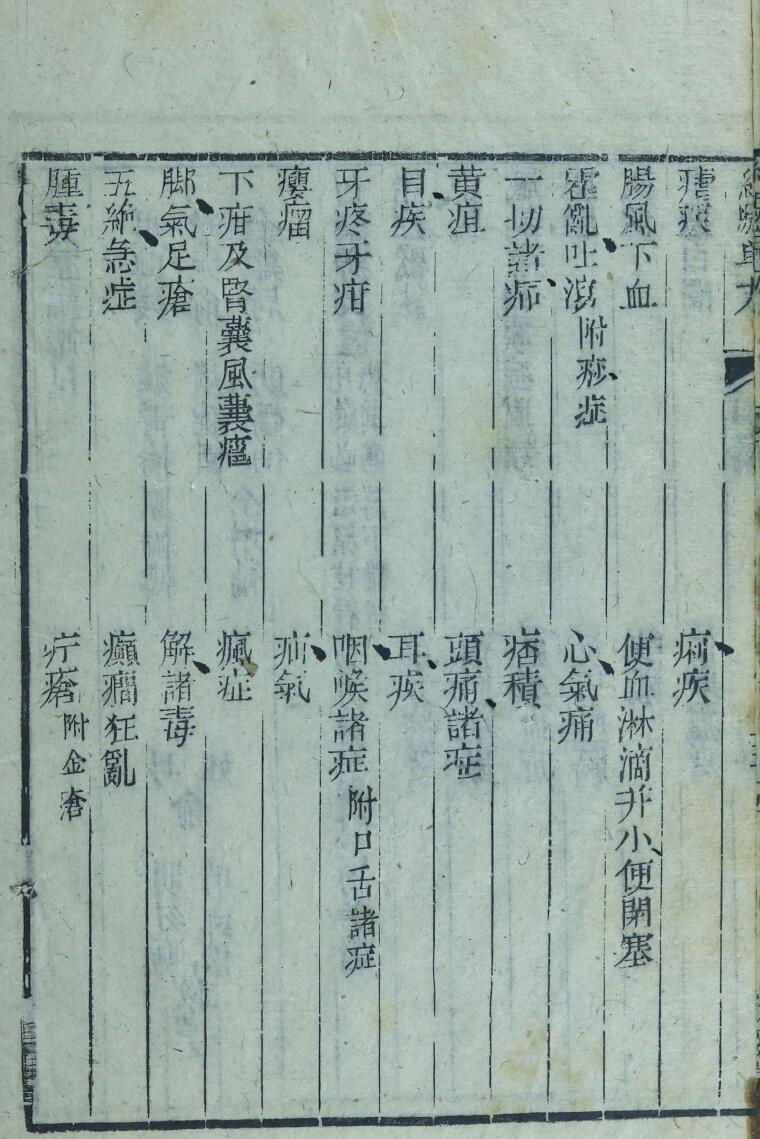 瘧疾　痢疾
腸風下血　便血淋滴并小便閉塞
霍亂吐瀉附痧症　心氣痛
一切諸　痞積
黄疸　頭痛諸症
目疾　耳疾
牙疼牙疳　咽喉諸症附口舌諸症
癭瘤　疝氣
下疳及腎囊風囊癰　瘋症
脚氣足瘡　解諸毒
五絶急症　癲癎狂亂
腫毒　疔瘡附金瘡